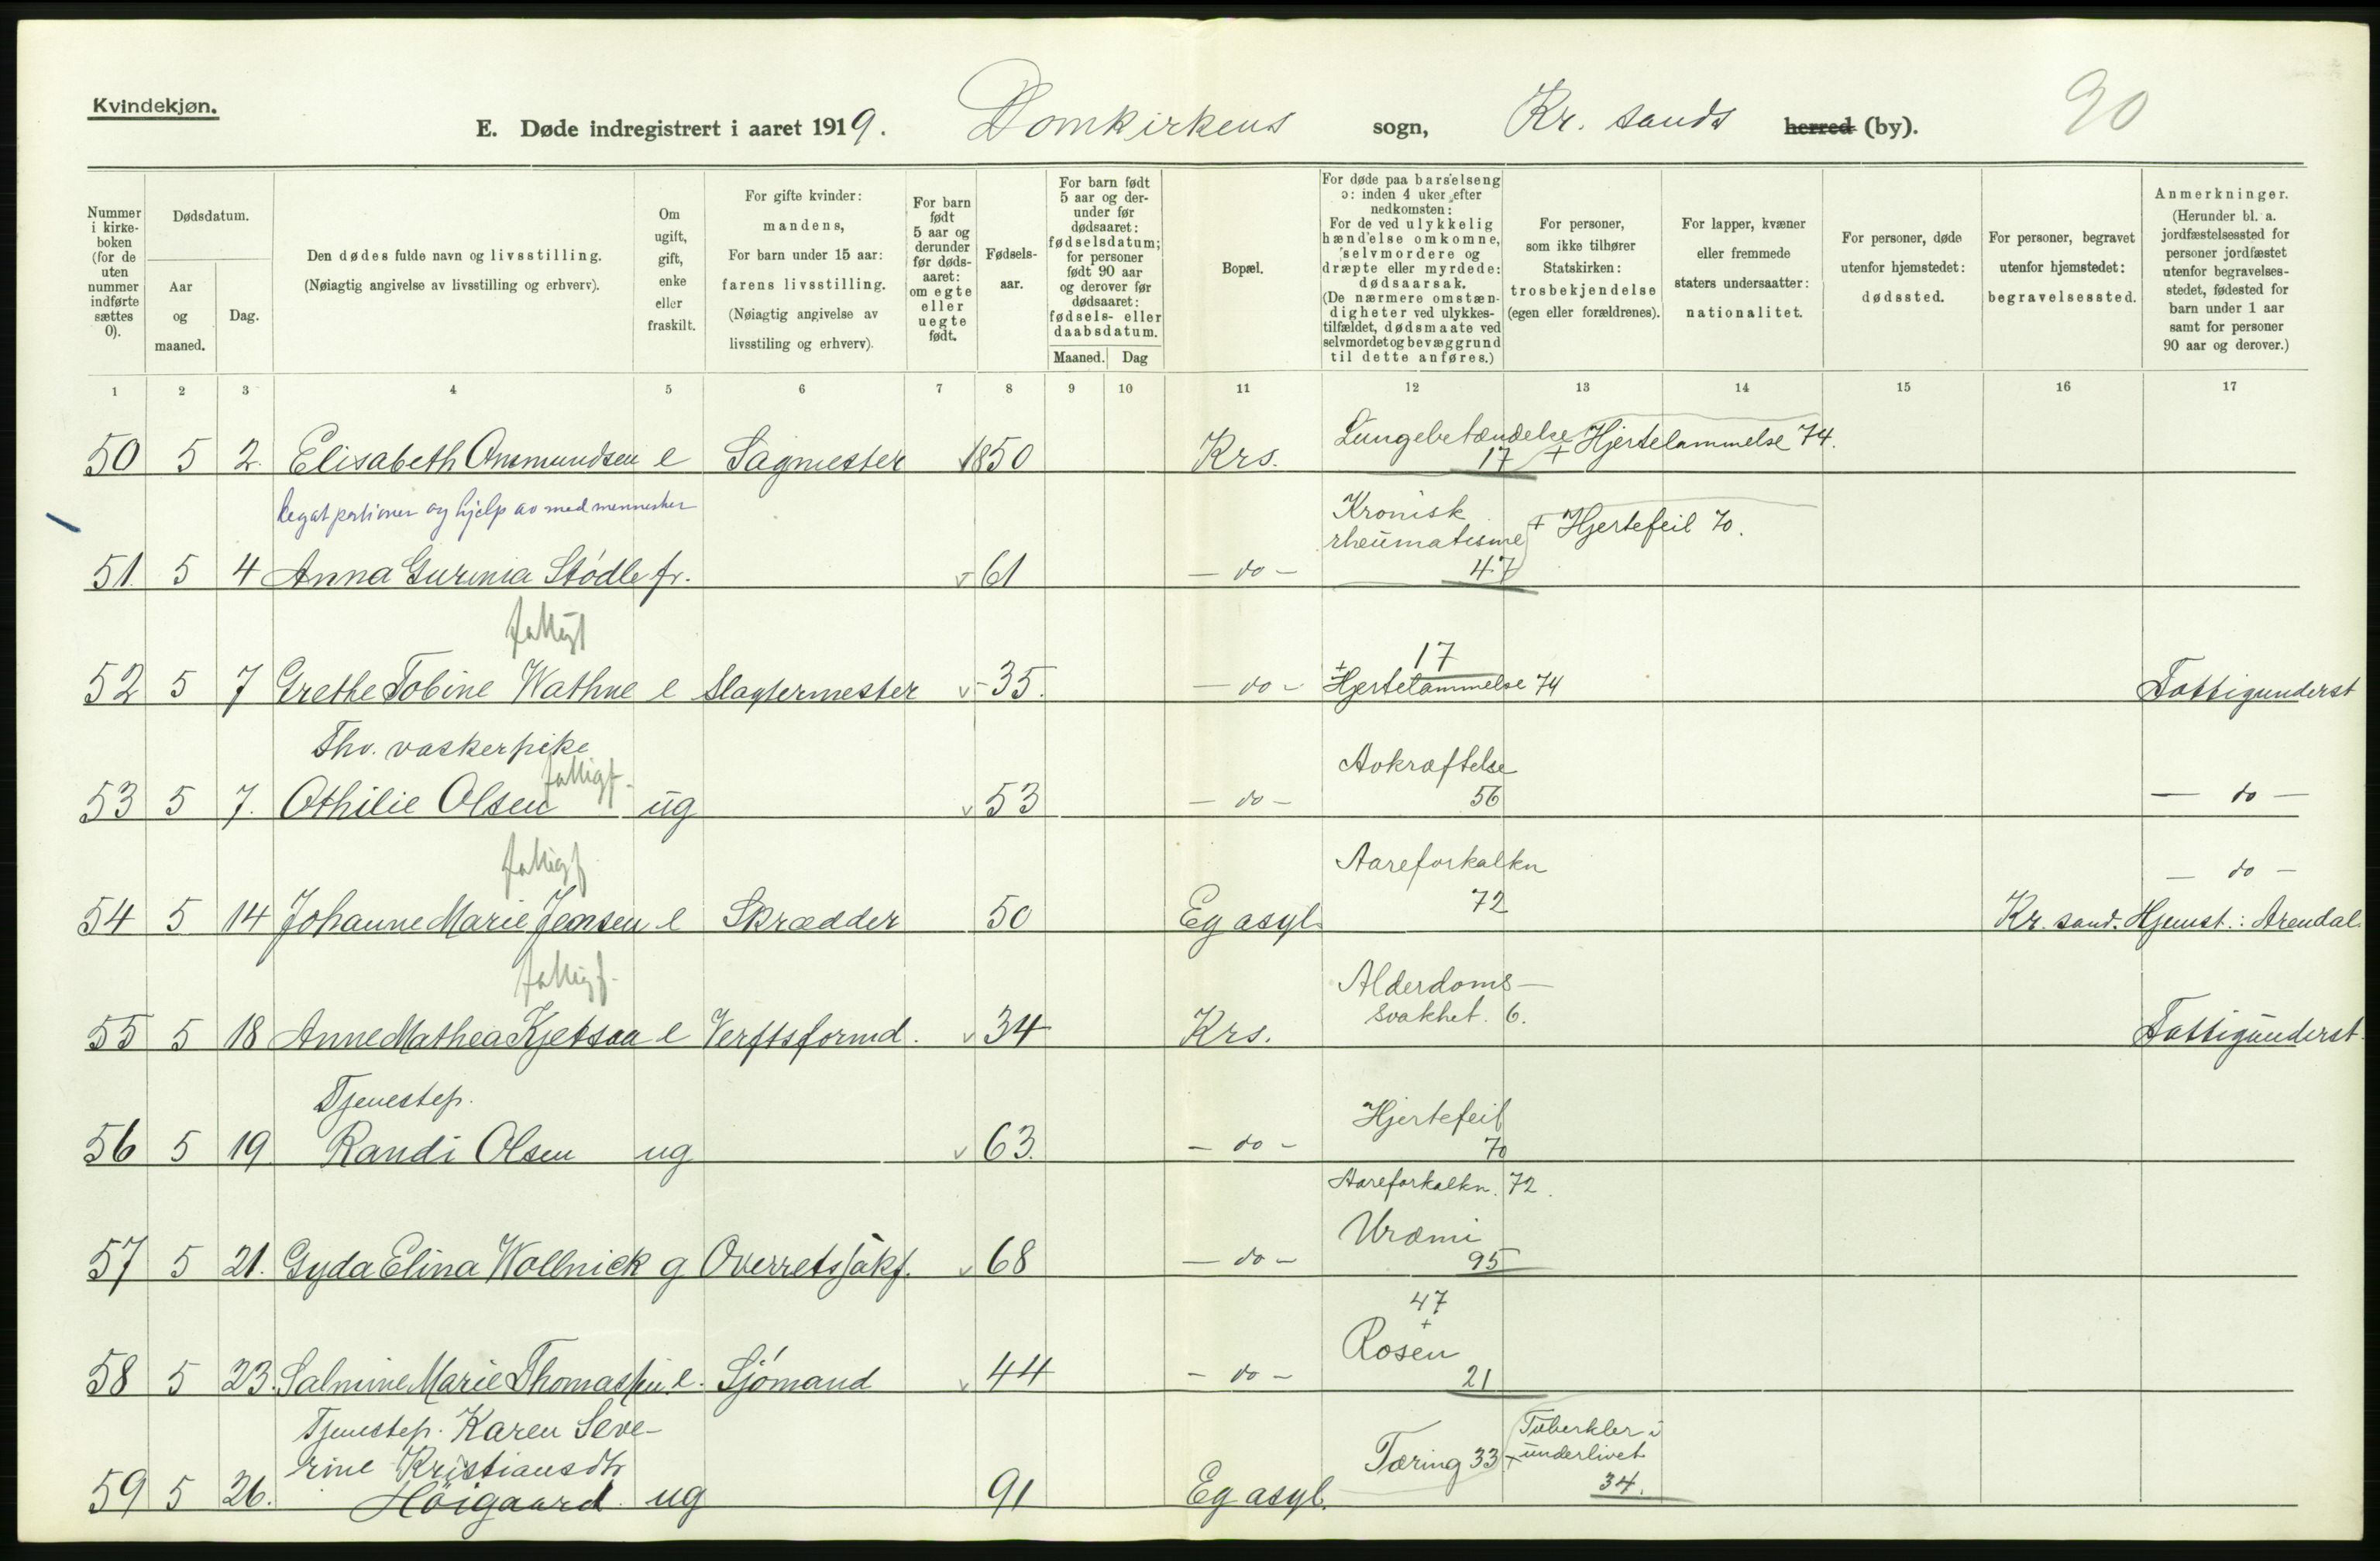 Kvindekjøn.
E. Døde indregistrert i aaret 1919. Domkirkens sogn, Kr. sands herred (by). 90
Nummer i kirke-boken (for de uten nummer indførte sættes 0).
Dødsdatum.
Aar og maaned.
Dag.
Den dødes fulde navn og livsstilling.
(Nøiagtig angivelse av livsstilling og erhverv).
Om ugift, gift, enke eller fraskilt.
For gifte kvinder: mandens,
For barn under 15 aar: farens livsstilling.
(Nøiagtig angivelse av livsstiling og erhverv).
For barn født 5 aar og derunder før døds-aaret: om egte eller uegte født.
Fødsels-aar.
For barn født 5 aar og der-under før dødsaaret: fødselsdatum; for personer født 90 aar og derover før dødsaaret: fødsels- eller daabsdatum.
Maaned.
Dag
Bopæl.
For døde paa barselseng ɔ: inden 4 uker efter nedkomsten:
For de ved ulykkelig hændelse omkomne, selvmordere og dræpte eller myrdede: dødsaarsak.
(De nærmere omstæn-digheter ved ulykkes-tilfældet, dødsmaate ved selvmordet og bevæggrund til dette anføres.)
For personer, som ikke tilhører Statskirken: trosbekjendelse (egen eller forældrenes).
For lapper, kvæner eller fremmede staters undersaatter: nationalitet.
For personer, døde utenfor hjemstedet: dødssted.
For personer, begravet utenfor hjemstedet: begravelsessted.
Anmerkninger.
(Herunder bl. a. jordfæstelsessted for personer jordfæstet utenfor begravelses-stedet, fødested for barn under 1 aar samt for personer 90 aar og derover.)
1 2 3 4 5 6 7 8 9 10 11 12 13 14 15 16 17
Lungebetændelse + Hjertelammelse 74.
50 5 2. Elisabeth Onsmundsen e Sagmester v 1850 Krs. 17
Legat portioner og hjelp av med mennesker
Kronisk
rheumatisme + Hjertefeil 70.
51. 5 4 Anna Gurinia Stödle fr. v 61 - do - 47
fattigf
17
52 5 7 Grethe Tobine Wathne e Slagtermester v - 35. - do - + Hjertelammelse 74 Fattigunderst
Fhv. vaskerpike
fattigf. Avkræftelse
53 5 7. Othilie Olsen ug v 53 - do - 56 - do -
fattigf Aareforkalkn - do -
54 5 14 Johanne Marie Jensen e Skrædder 50 Eg asyl. 72 Kr. sand. Hjemst.: Arendal.
fattigf. Alderdoms-
svakhet. 6.
55 5 18 Anne Mathea Kjetsaa e Verftsformd. v 34 Krs. Fattigunderst.
Tjenestep. Hjertefeil
56 5 19 Randi Olsen ug v 63. - do - 70
Aareforkalkn. 72.
Uræmi
57 5 21. Gyda Elina Wollnick g Overretssakf. v 68 - do - 95
47
+
Rosen
58 5 23. Salmine Marie Thomassen e. Sjömand v 44 - do - 21
Tjenestep. Karen Seve-
rine Kristiansdtr Tæring 33 + Tuberkler i
underlivet
34.
59 5 26. Höigaard ug 91 Eg asyl.